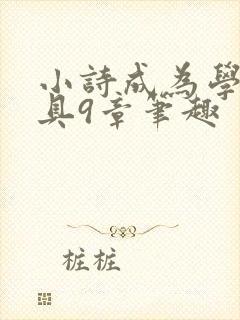 小詩成為學
具9章筆趣
桩桩